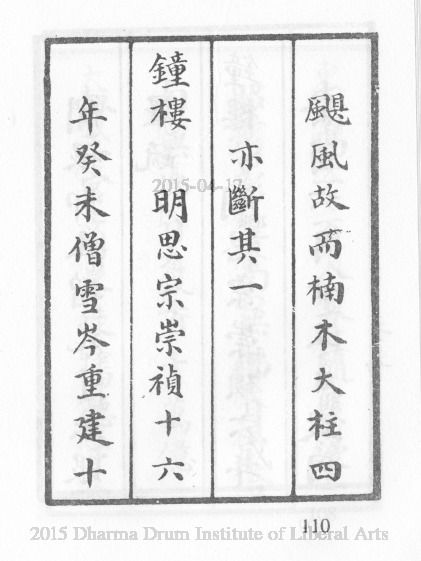 颶風故而楠木大柱四
亦斷其一
鐘樓 明思宗崇禎十六
年癸未僧雪岑重建十
2015-04-17
110
2015 Dharma Drum Institute of Liberal Arts